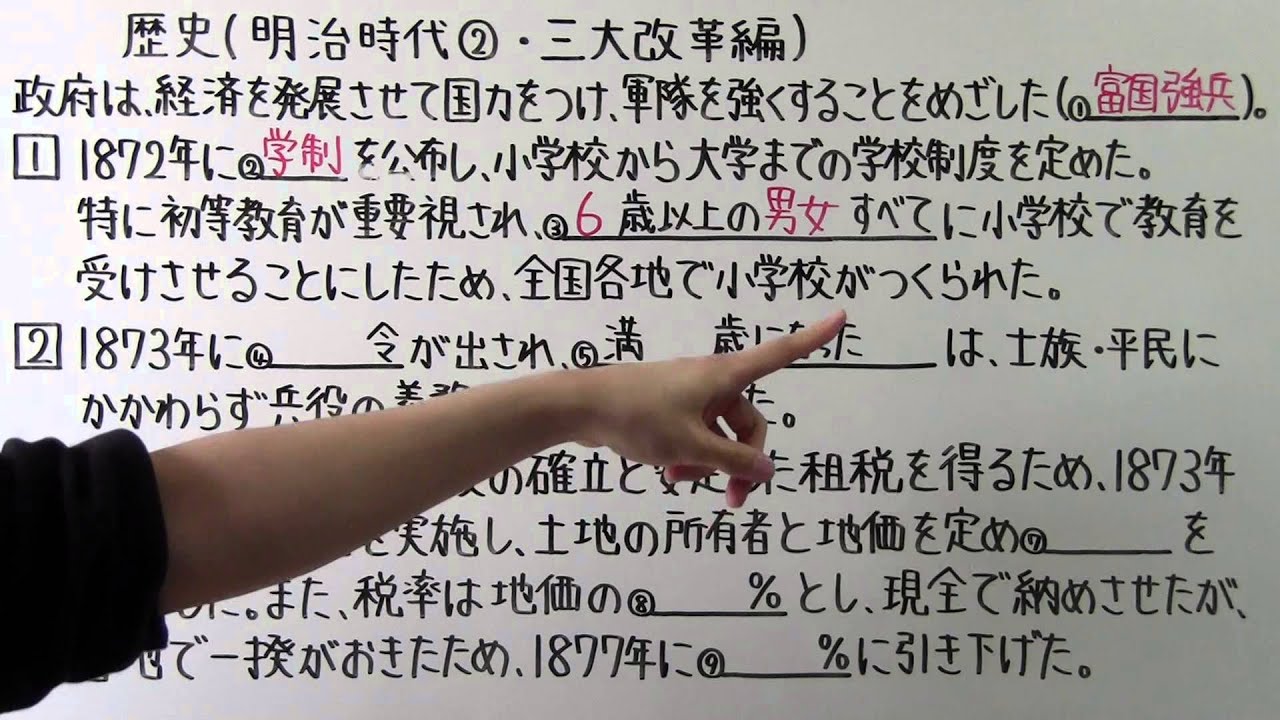 歴史(明治時代②・三大改革編)
政府は、経済を発展させて国力をつけ、軍隊を強くすることをめざした(①富国強兵)。
1 1872年に②学制を公布し、小学校から大学までの学校制度を定めた。
特に初等教育が重要視され、③6歳以上の男女すべてに小学校で教育を
受けさせることにしたため、全国各地で小学校がつくられた。
2 1873年に④令が出され、⑤満 歳になった は、士族・平民に
かかわらず兵役の義務 た。
の確立と安定した租税を得るため、1873年
を実施し、土地の所有者と地価を定め⑦ を
した。また、税率は地価の⑧ %とし、現金で納めさせたが、
地で一揆がおきたため、1877年に⑨ %に引き下げた。